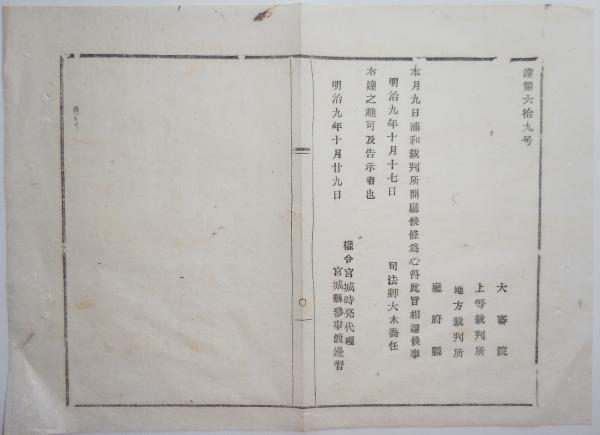 達第六拾九号
大審院
上等裁判所
地方裁判所
廳府縣
本月九日浦和裁判所開廳候條為心得此旨相達候事
明治九年十月十七日
司法卿大木喬任
本達之趣可及告示者也
明治九年十月廿九日
權令宮城時亮代理
宮城縣參事渡邊習